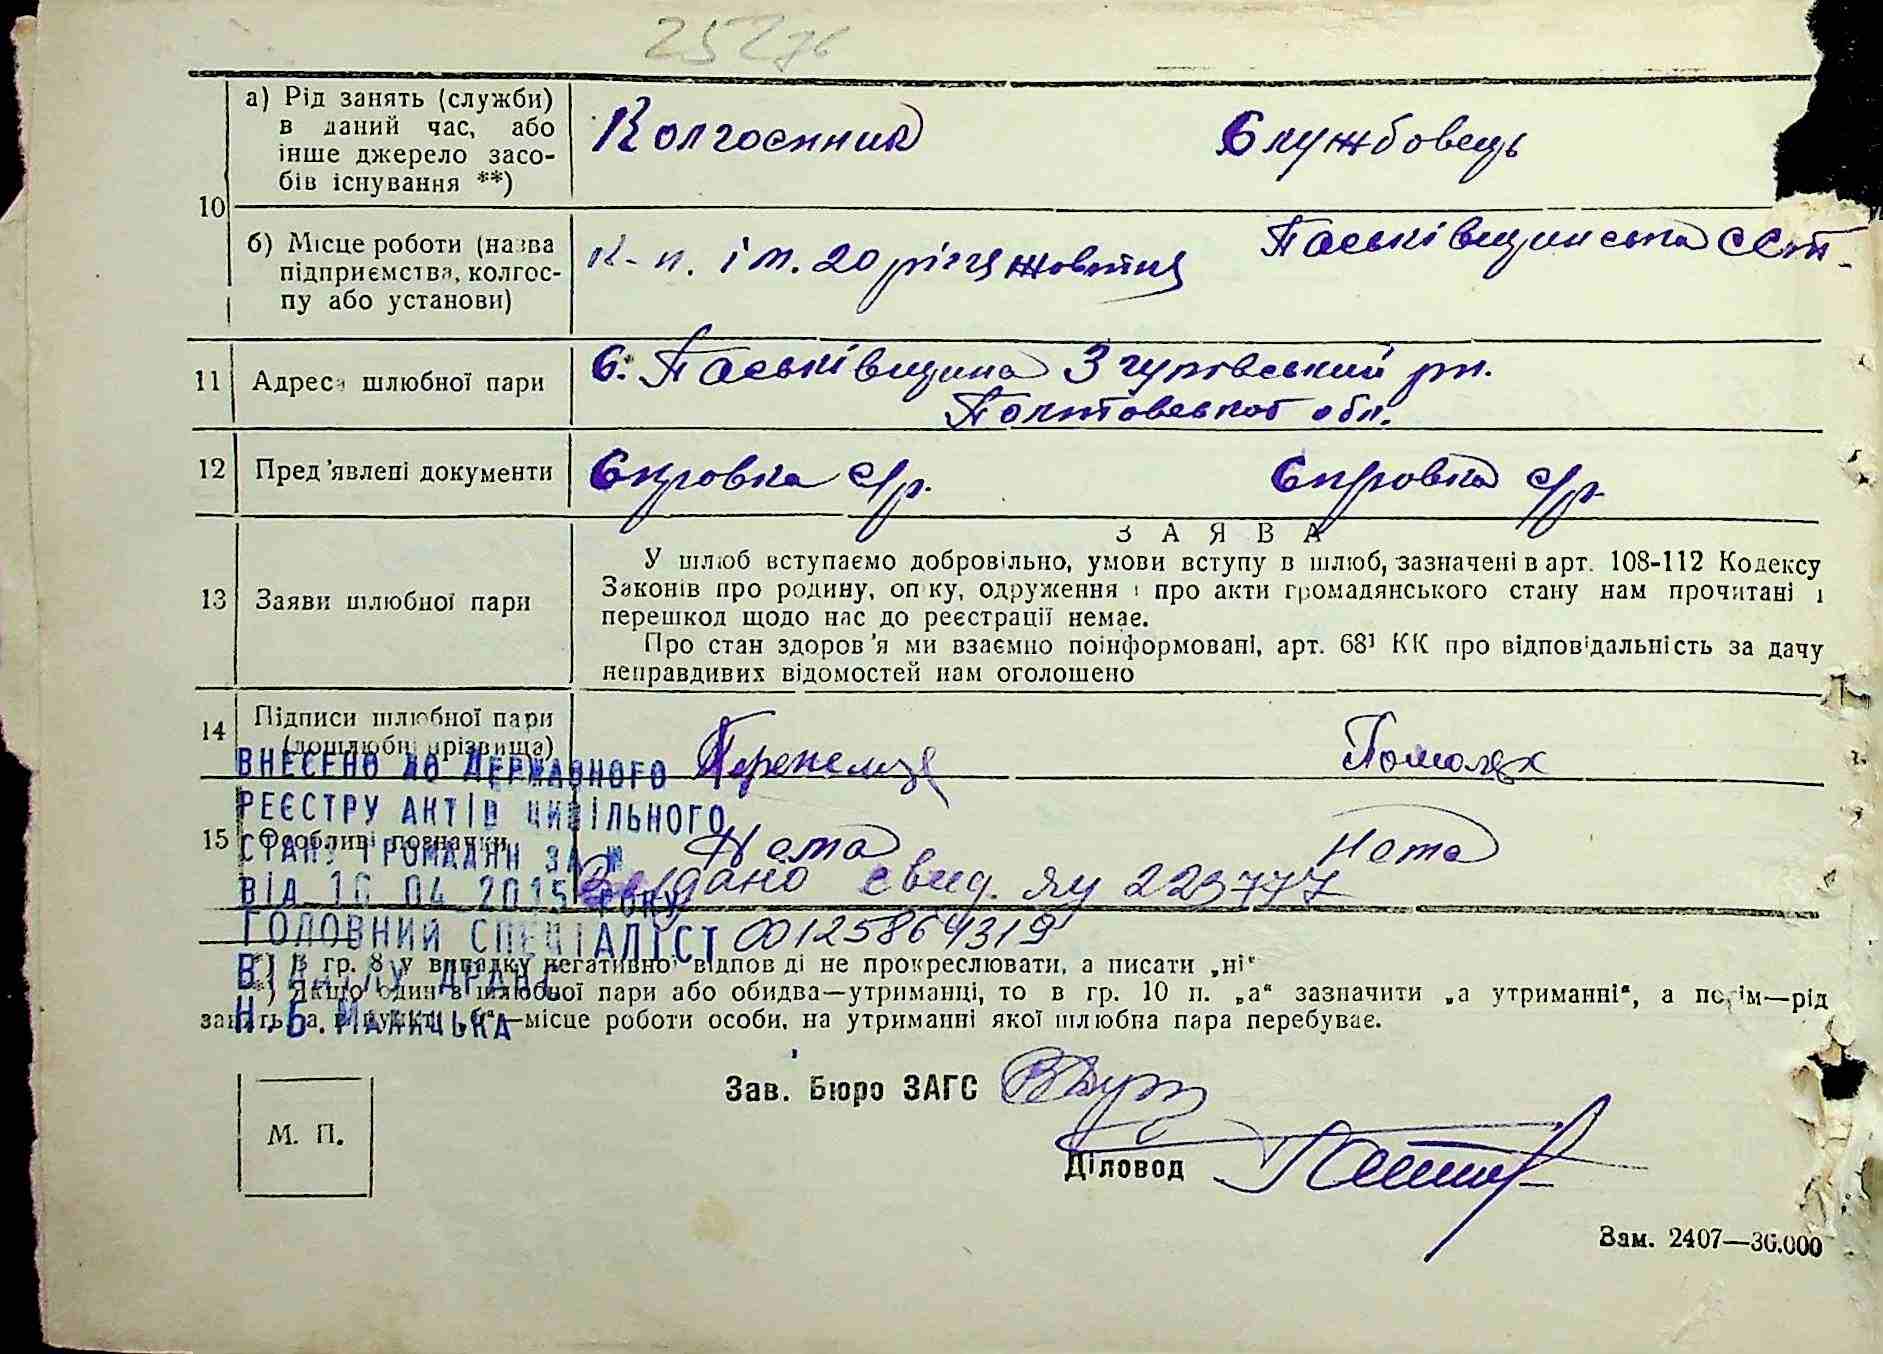 252 зв
10
а) Рід занять (служби)
в даний час, або
інше джерело засо-
бів існування **)
Колгоспник
Службовець
б) Місце роботи (назва
підприємства, колгос-
пу або установи)
К-п. ім. 20 річчя жовтня
Паськівщинська
11 Адреса шлюбної пари
С. Паськівщина Згурівський рн.
Полтавської обл.
12 Пред'явлені документи
Справка с/р.
Справка с/р.
13 Заяви шлюбної пари
ЗАЯВА
У шлюб вступаємо добровільно, умови вступу в шлюб, зазначені в арт. 108-112 Кодексу
Законів про родину, опіку, одруження і про акти громадянського стану нам прочитані і
перешкод щодо нас до реєстрації немає.
Про стан здоров'я ми взаємно поінформовані, арт. 68¹ КК про відповідальність за дачу
неправдивих відомостей нам оголошено
14 Підписи шлюбної пари
(дошлюбні прізвища)
ВНЕСЕНО ДО ДЕРЖАВНОГО
РЕЄСТРУ АКТІВ ЦИВІЛЬНОГО
СТАНУ ГРОМАДЯН ЗА №
ВІД 16 04 2015 РОКУ
ГОЛОВНИЙ СПЕЦІАЛІСТ
ВІДДІЛУ ДРАЦС
Н. Б.
15 Особливі позначки
Нема
Нема
Видано свид. яу 223777
00125864319
*) В гр. 8 у випадку негативної відповіді не прокреслювати, а писати „ні“
**) Якщо один з шлюбної пари або обидва—утриманці, то в гр. 10 п. „а“ зазначити „а утриманні“, а потім—рід
занять, а в пункті „б“—місце роботи особи, на утриманні якої шлюбна пара перебуває.
М. П.
Зав. Бюро ЗАГС
Діловод
Зам. 2407—30.000